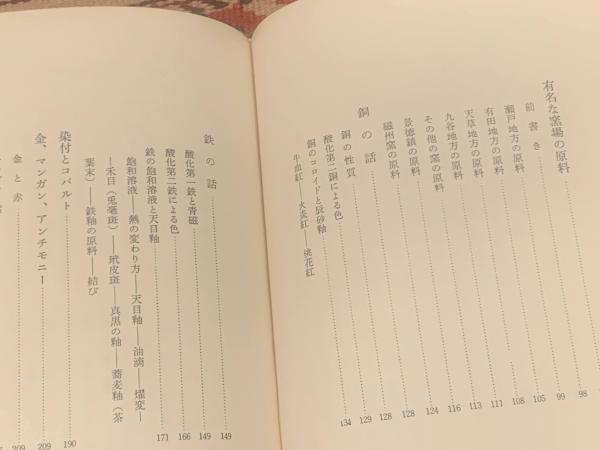 有名な窯場の原料
前書き 98
瀬戸地方の原料 99
有田地方の原料 105
天草地方の原料 108
九谷地方の原料 111
その他の窯の原料 113
景徳鎮の原料 116
磁州窯の原料 124
銅の話 128
銅の性質 128
酸化第二銅による色 129
銅のコロイドと辰砂釉 134
牛血紅――火炎紅――桃花紅
鉄の話 149
酸化第一鉄と青磁 149
酸化第二鉄による色 166
鉄の飽和溶液と天目釉 171
飽和溶液――熱の変わり方――天目釉――油滴――燿変―
―禾目（兎毫斑）――玳皮斑――真黒の釉――蕎麦釉（茶
葉末）――鉄釉の原料――結び
染付とコバルト 190
金、マンガン、アンチモニー 209
金と赤 209